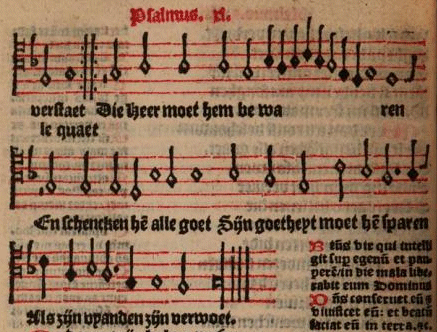 Psalmus. xl.
verstaet Die Heer moet hem be wa ren
le quaet
En schencken hē alle goet Sijn goetheyt moet hē sparen
Als zijn vyanden zijn verwoet.
Beatus vir qui intelli
git sup egenū et pau
perē/in die mala libe
rabit eum Dominus
Dn̄s conseruet eū ⁊
viuificet eū: et beatū
faciat eū in terra.⁊c.